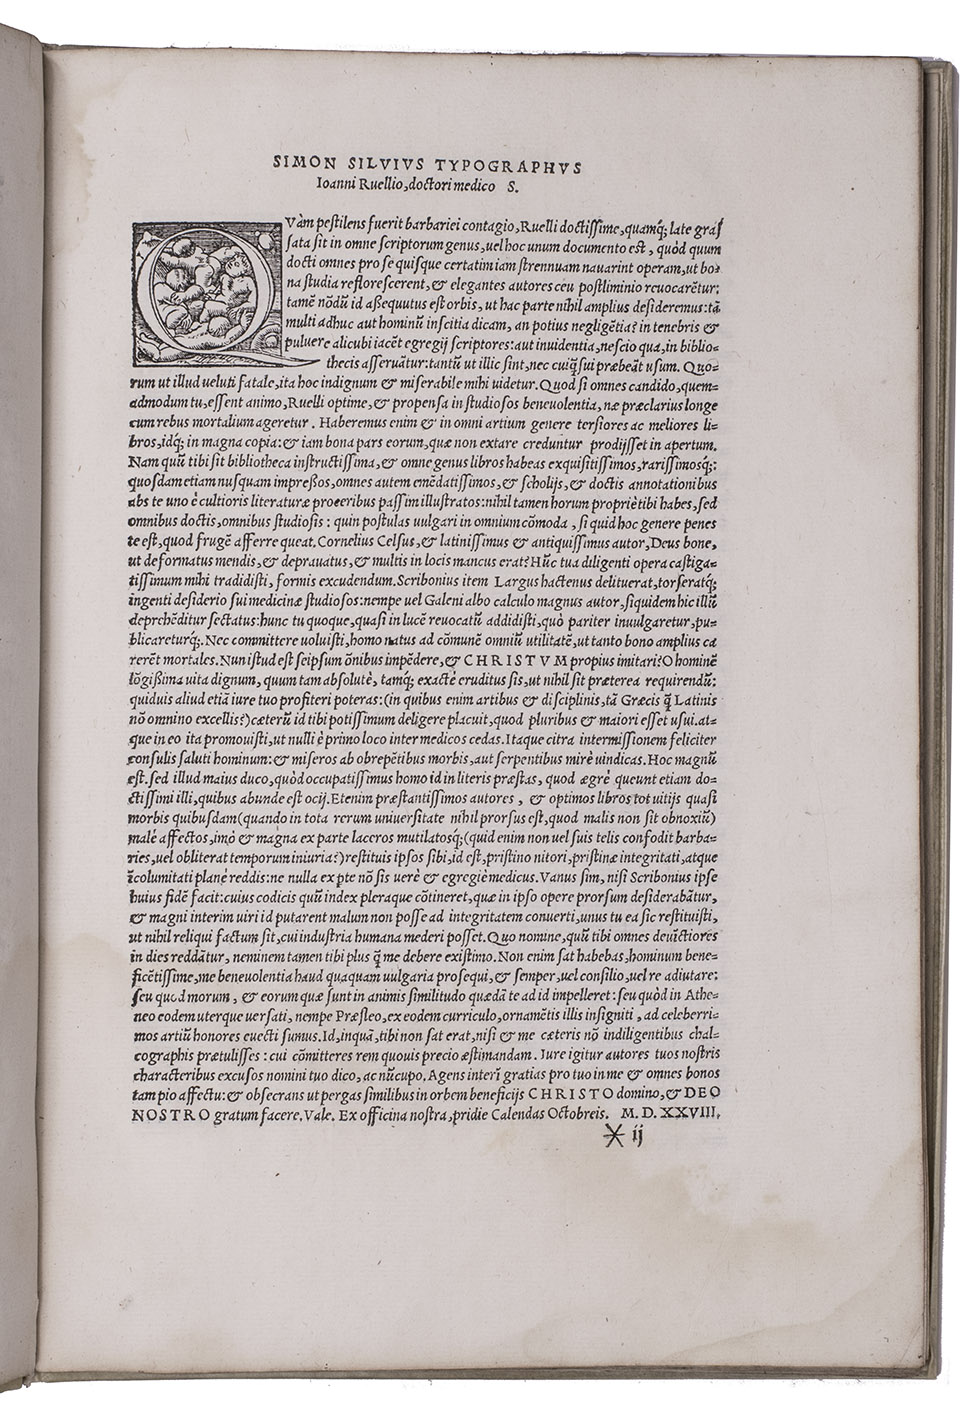 SIMON SILVIVS TYPOGRAPHVS
Ioanni Ruellio, doctori medico S.
QVàm pestilens fuerit barbariei contagio, Ruelli doctissime, quamq́; late gras
sata sit in omne scriptorum genus, uel hoc unum documento est, quòd quum
docti omnes pro se quisque certatim iam strennuam nauarint operam, ut bo-
na studia reflorescerent, & elegantes autores ceu postliminio reuocarētur:
tamē nōdū id aßequutus est orbis, ut hac parte nihil amplius desideremus: tā
multi adhuc aut hominū inscitia dicam, an potius negligētia? in tenebris &
puluere alicubi iacēt egregij scriptores: aut inuidentia, nescio qua, in biblio-
thecis asseruātur: tantū ut illic sint, nec cuiq̃ sui præbeāt usum. Quo-
rum ut illud ueluti fatale, ita hoc indignum & miserabile mihi uidetur. Quod si omnes candido, quem-
admodum tu, essent animo, Ruelli optime, & propensa in studiosos beneuolentia, næ præclarius longe
cum rebus mortalium ageretur. Haberemus enim & in omni artium genere tersiores ac meliores li-
bros, idq́; in magna copia: & iam bona pars eorum, quæ non extare creduntur prodijsset in apertum.
Nam quū tibi sit bibliotheca instructissima, & omne genus libros habeas exquisitissimos, rarissimosq́;:
quosdam etiam nusquam impreßos, omnes autem emēdatissimos, & scholijs, & doctis annotationibus
abs te uno è cultioris literaturæ proceribus passim illustratos: nihil tamen horum propriè tibi habes, sed
omnibus doctis, omnibus studiosis: quin postulas uulgari in omnium cōmoda, si quid hoc genere penes
te est, quod frugē afferre queat. Cornelius Celsus, & latinissimus & antiquissimus autor, Deus bone,
ut deformatus mendis, & deprauatus, & multis in locis mancus erat? Hūc tua diligenti opera castiga-
tissimum mihi tradidisti, formis excudendum. Scribonius item Largus hactenus delituerat, torseratq́;
ingenti desiderio sui medicinæ studiosos: nempe uel Galeni albo calculo magnus autor, siquidem hic illū
deprehēditur sectatus: hunc tu quoque, quasi in lucē reuocatū addidisti, quò pariter inuulgaretur, pu-
blicareturq́;. Nec committere uoluisti, homo natus ad cōmunē omniū utilitatē, ut tanto bono amplius ca
rerēt mortales. Nun istud est seipsum ōnibus impēdere, & CHRISTVM propius imitari? O hominē
lōgißima uita dignum, quum tam absolutè, tamq́; exactè eruditus sis, ut nihil sit præterea requirendū:
quiduis aliud etiā iure tuo profiteri poteras: (in quibus enim artibus & disciplinis, tā Græcis q̃ Latinis
nō omnino excellis?) cæterū id tibi potissimum deligere placuit, quod pluribus & maiori esset usui. at-
que in eo ita promouisti, ut nulli è primo loco inter medicos cedas. Itaque citra intermissionem feliciter
consulis saluti hominum: & miseros ab obrepētibus morbis, aut serpentibus mirè uindicas. Hoc magnū
est. sed illud maius duco, quòd occupatissimus homo id in literis præstas, quod ægrè queunt etiam do-
ctissimi illi, quibus abunde est ocij. Etenim præstantissimos autores, & optimos libros tot uitijs quasi
morbis quibusdam (quando in tota rerum uniuersitate nihil prorsus est, quod malis non sit obnoxiū)
malè affectos, imò & magna ex parte laceros mutilatosq́; (quid enim non uel suis telis confodit barba-
ries, uel obliterat temporum iniuria?) restituis ipsos sibi, id est, pristino nitori, pristinæ integritati, atque
īcolumitati planè reddis: ne nulla ex pte nō sis uerè & egregiè medicus. Vanus sim, nisi Scribonius ipse
huius fidē facit: cuius codicis quū index pleraque cōtineret, quæ in ipso opere prorsum desiderabātur,
& magni interim uiri id putarent malum non posse ad integritatem conuerti, unus tu ea sic restituisti,
ut nihil reliqui factum sit, cui industria humana mederi posset. Quo nomine, quū tibi omnes deuīctiores
in dies reddātur, neminem tamen tibi plus q̃ me debere existimo. Non enim sat habebas, hominum bene-
ficētissime, me beneuolentia haud quaquam uulgaria prosequi, & semper, uel consilio, uel re adiutare:
seu quod morum, & eorum quæ sunt in animis similitudo quædā te ad id impelleret: seu quòd in Athe-
neo eodem uterque uersati, nempe Præsleo, ex eodem curriculo, ornamētis illis insigniti, ad celeberri-
mos artiū honores euecti sumus. Id, inquā, tibi non sat erat, nisi & me cæteris nō indiligentibus chal-
cographis prætulisses: cui cōmitteres rem quouis precio æstimandam. Iure igitur autores tuos nostris
characteribus excusos nomini tuo dico, ac nūcupo. Agens interī gratias pro tuo in me & omnes bonos
tam pio affectu: & obsecrans ut pergas similibus in orbem beneficijs CHRISTO domino, & DEO
NOSTRO gratum facere. Vale. Ex officina nostra, pridie Calendas Octobreis. M. D. XXVIII.
* ij